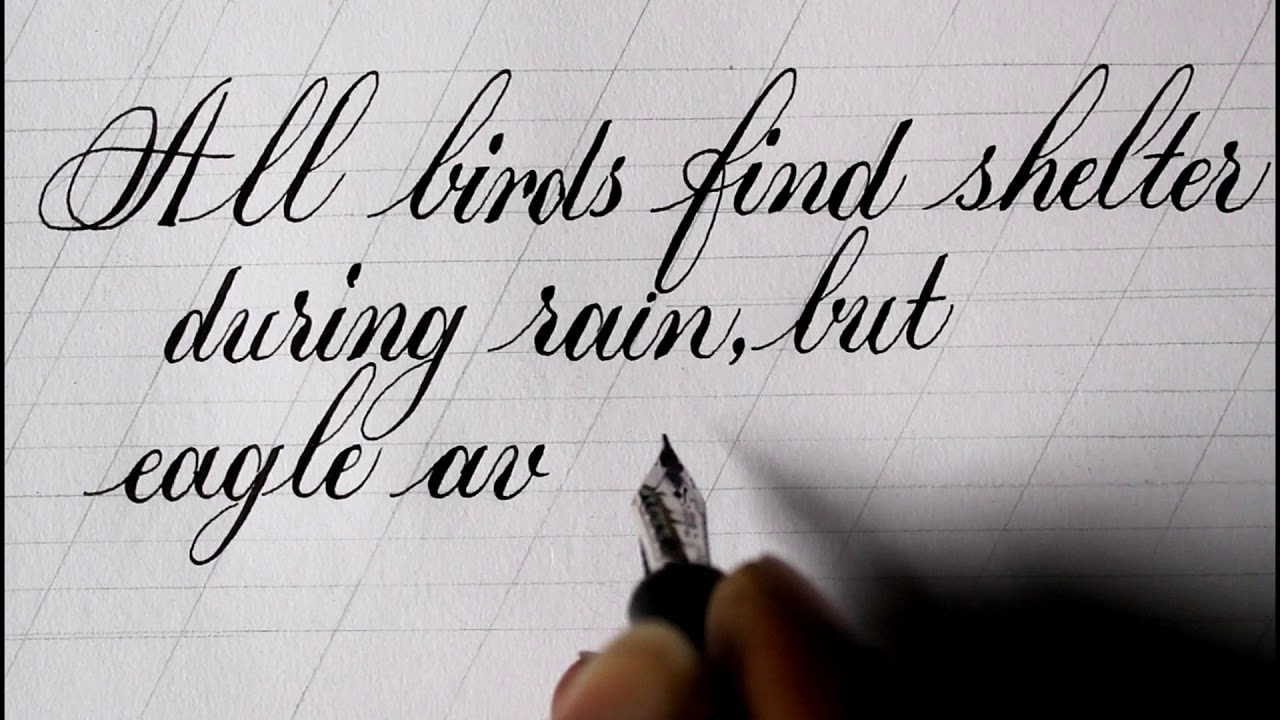 All birds find shelter
during rain, but
eagle av